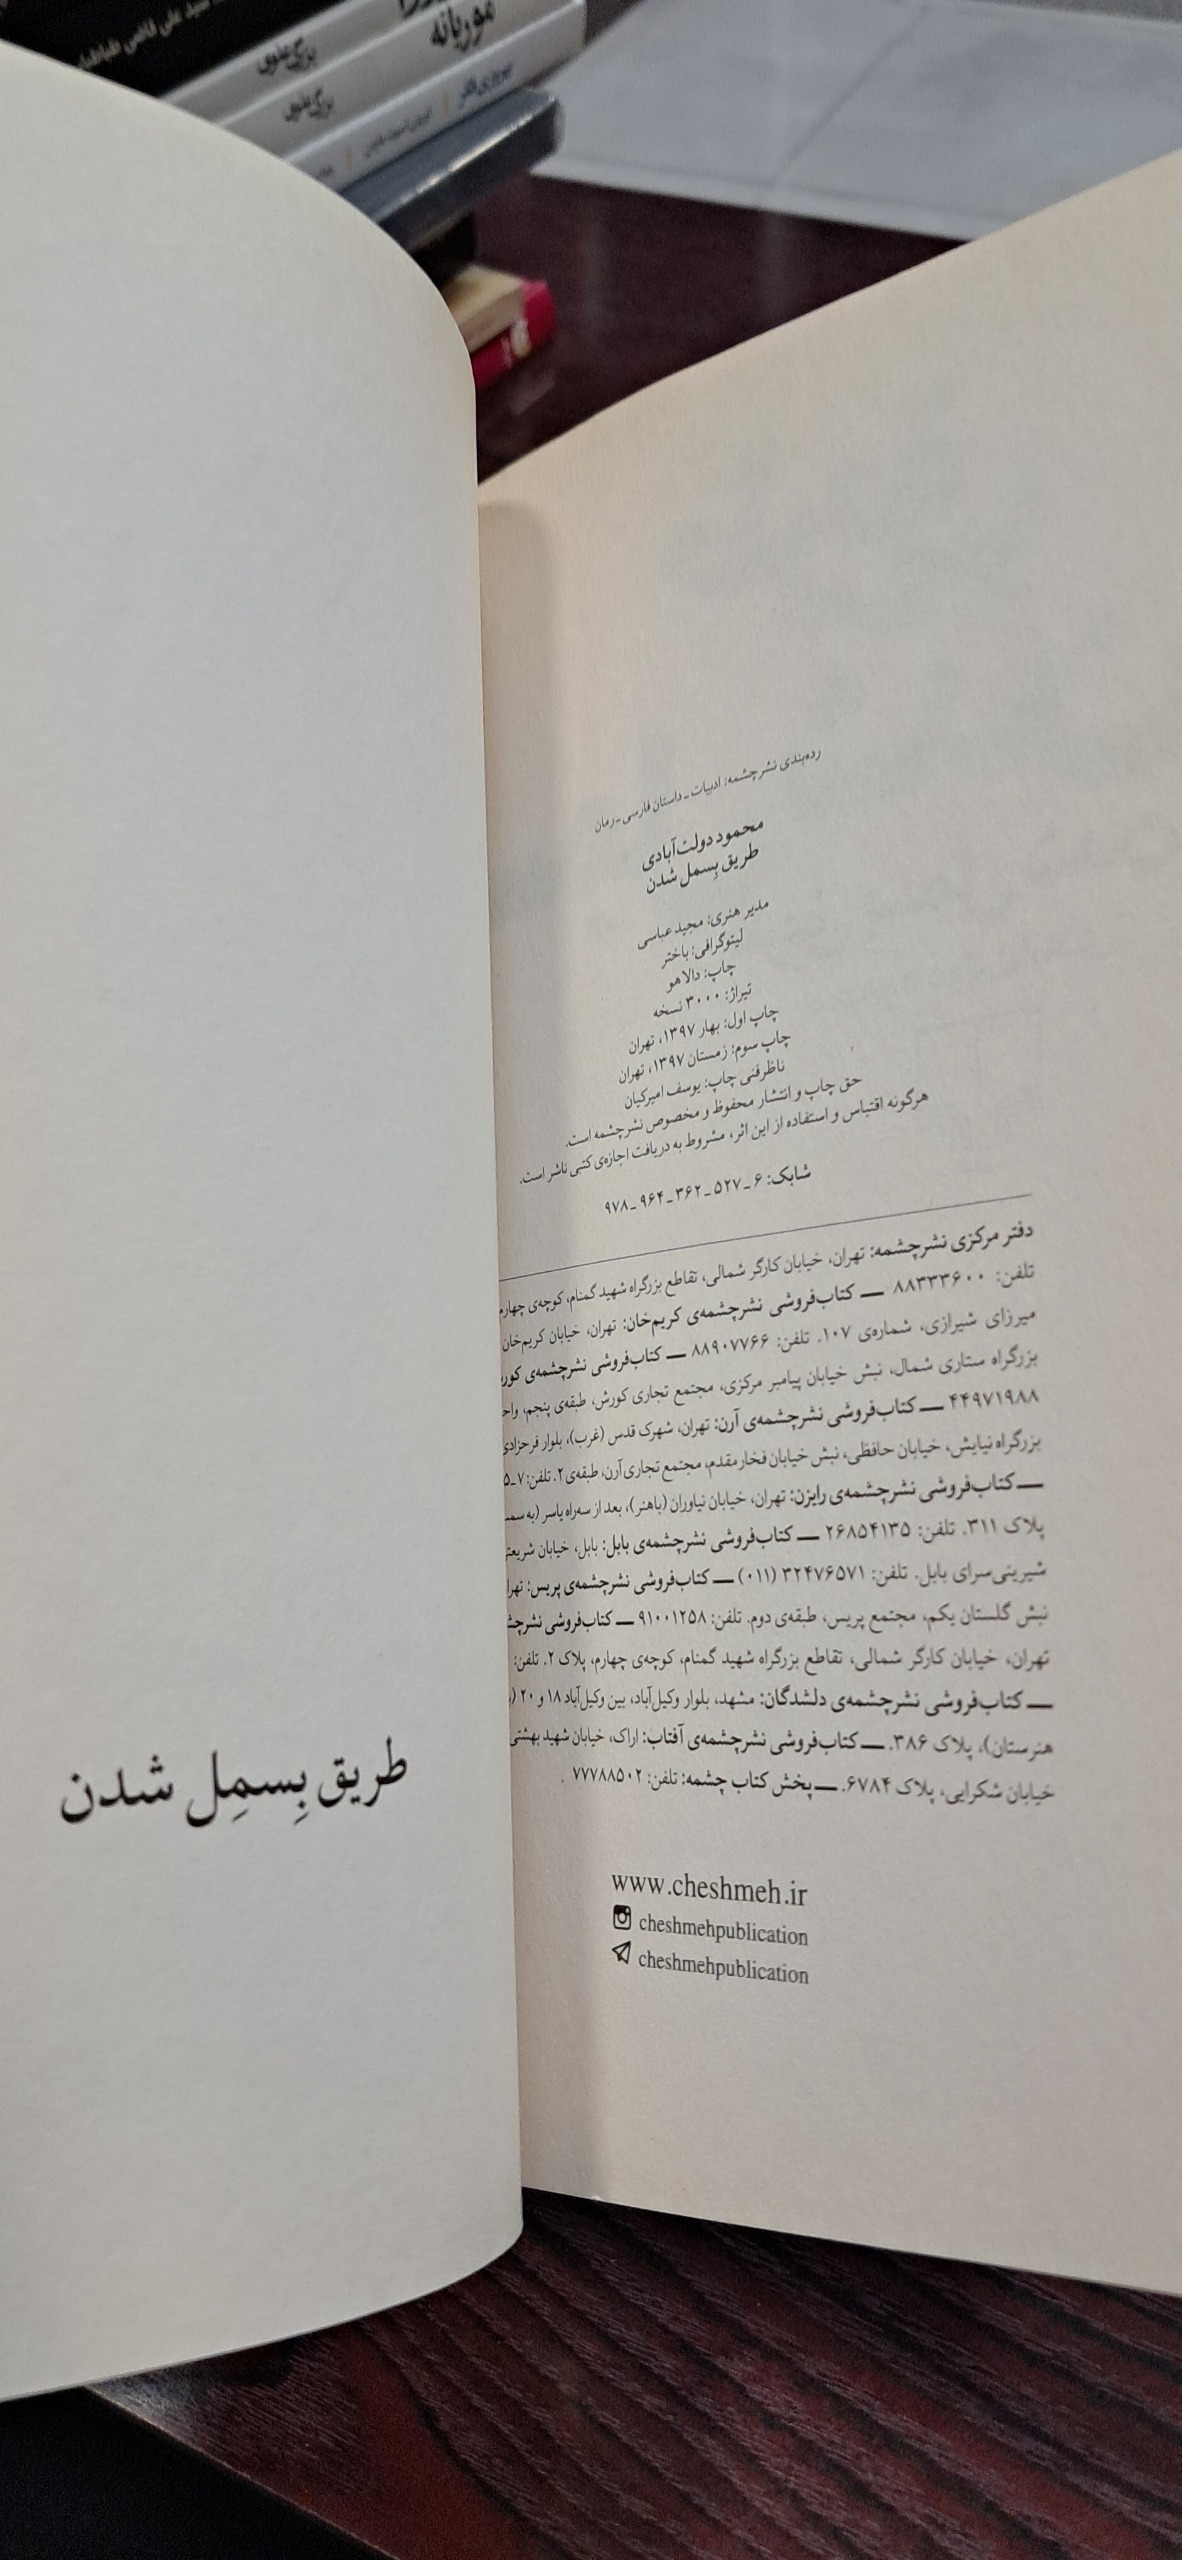 سید علی قاضی طباطبایی
موریانه
بزرگ علوی
بزرگ علوی
رده‌بندی نشرچشمه: ادبیات ـ داستان فارسی ـ رمان
محمود دولت‌آبادی
طریق بِسمل شدن
مدیر هنری: مجید عباسی
لیتوگرافی: باختر
چاپ: دالاهو
تیراژ: ۳۰۰۰ نسخه
چاپ اول: بهار ۱۳۹۷، تهران
چاپ سوم: زمستان ۱۳۹۷، تهران
ناظر فنی چاپ: یوسف امیرکیان
حق چاپ و انتشار محفوظ و مخصوص نشرچشمه است.
هرگونه اقتباس و استفاده از این اثر، مشروط به دریافت اجازه‌ی کتبی ناشر است.
شابک: ۶ـ۵۲۷ـ۳۶۲ـ۹۶۴ـ۹۷۸
دفتر مرکزی نشرچشمه: تهران، خیابان کارگر شمالی، تقاطع بزرگراه شهید گمنام، کوچه‌ی چهارم
تلفن: ۸۸۳۳۳۶۰۰ — کتاب‌فروشی نشرچشمه‌ی کریم‌خان: تهران، خیابان کریم‌خان
میرزای شیرازی، شماره‌ی ۱۰۷. تلفن: ۸۸۹۰۷۷۶۶ — کتاب‌فروشی نشرچشمه‌ی کور
بزرگراه ستاری شمال، نبش خیابان پیامبر مرکزی، مجتمع تجاری کورش، طبقه‌ی پنجم، واح
۴۴۹۷۱۹۸۸ — کتاب‌فروشی نشرچشمه‌ی آرن: تهران، شهرک قدس (غرب)، بلوار فرحزادی
بزرگراه نیایش، خیابان حافظی، نبش خیابان فخار مقدم، مجتمع تجاری آرن، طبقه‌ی ۲. تلفن: ۷ـ۵
— کتاب‌فروشی نشرچشمه‌ی رایزن: تهران، خیابان نیاوران (باهنر)، بعد از سه‌راه یاسر (به سمت
پلاک ۳۱۱. تلفن: ۲۶۸۵۴۱۳۵ — کتاب‌فروشی نشرچشمه‌ی بابل: بابل، خیابان شریعتی
شیرینی‌سرای بابل. تلفن: ۳۲۴۷۶۵۷۱ (۰۱۱) — کتاب‌فروشی نشرچشمه‌ی پریس: تهرا
نبش گلستان یکم، مجتمع پریس، طبقه‌ی دوم. تلفن: ۹۱۰۰۱۲۵۸ — کتاب‌فروشی نشرچش
تهران، خیابان کارگر شمالی، تقاطع بزرگراه شهید گمنام، کوچه‌ی چهارم، پلاک ۲. تلفن:
— کتاب‌فروشی نشرچشمه‌ی دلشدگان: مشهد، بلوار وکیل‌آباد، بین وکیل‌آباد ۱۸ و ۲۰
هنرستان)، پلاک ۳۸۶. — کتاب‌فروشی نشرچشمه‌ی آفتاب: اراک، خیابان شهید بهشتی
خیابان شکرایی، پلاک ۶۷۸۴. — پخش کتاب چشمه: تلفن: ۷۷۷۸۸۵۰۲ .
www.cheshmeh.ir
cheshmehpublication
cheshmehpublication
طریق بِسمِل شدن